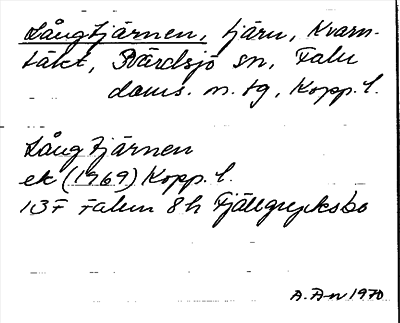 Långtjärnen, tjärn, Kvarn-
täkt, Svärdsjö sn, Falu
doms. n. tg, Kopp. l.
Lång tjärnen
ek (1969) Kopp. l.
13F Falun 8h Fjällgrycksbo
A. An 1970